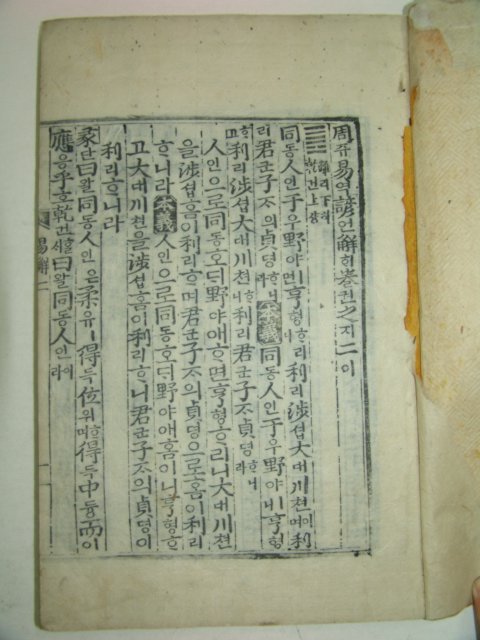 周쥬易역諺언解ᄒᆡ卷권之지二이
䷌ 離리下하乾건上샹
同동人인于우野야ㅣ면亨형ᄒᆞ리니利리涉셥大대川쳔이며利
리君군子ᄌᆞ의貞뎡ᄒᆞ니라 本義 同동人인于우野야ㅣ니亨형
ᄒᆞ고利리涉셥大대川쳔ᄒᆞ니利리君군子ᄌᆞ貞뎡ᄒᆞ니라
人인으로同동호ᄃᆡ野야애ᄒᆞ면亨형ᄒᆞ리니大대川쳔
을涉셥홈이利리ᄒᆞ며君군子ᄌᆞ의貞뎡으로홈이利리
ᄒᆞ니라 本義 人인으로同동호ᄃᆡ野야애홈이니亨형ᄒᆞ
고大대川쳔을涉셥홈이利리ᄒᆞ니君군子ᄌᆞ의貞뎡이
利리ᄒᆞ니라
彖단曰왈同동人인은柔유ㅣ得득位위ᄒᆞ며得득中듕而이
應응乎호乾건ᄒᆞᆯᄉᆡ曰왈同동人인이라
易解二 一